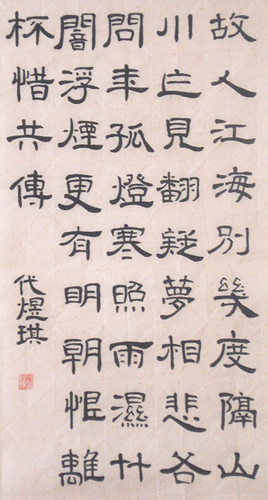 故人江海別幾度隔山
川乍見翻疑夢相悲各
問年孤燈寒照雨濕竹
闇浮煙更有明朝恨離
杯惜共傳
代煜琪